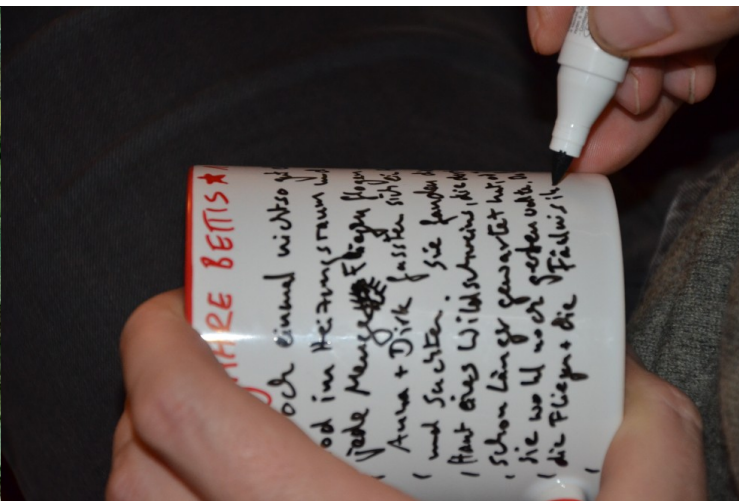 JAHRE BETTIS★
och einmal nicht so
od im Heizungsraum und
jede Menge Fliegen flogen
Anna + Dirk fassten sich
und suchten. Sie fanden
Haut eines Wildschweins die
schon länger gewartet hat
sie wohl noch gerben wollte.
die Fliegen + die Fäulnis